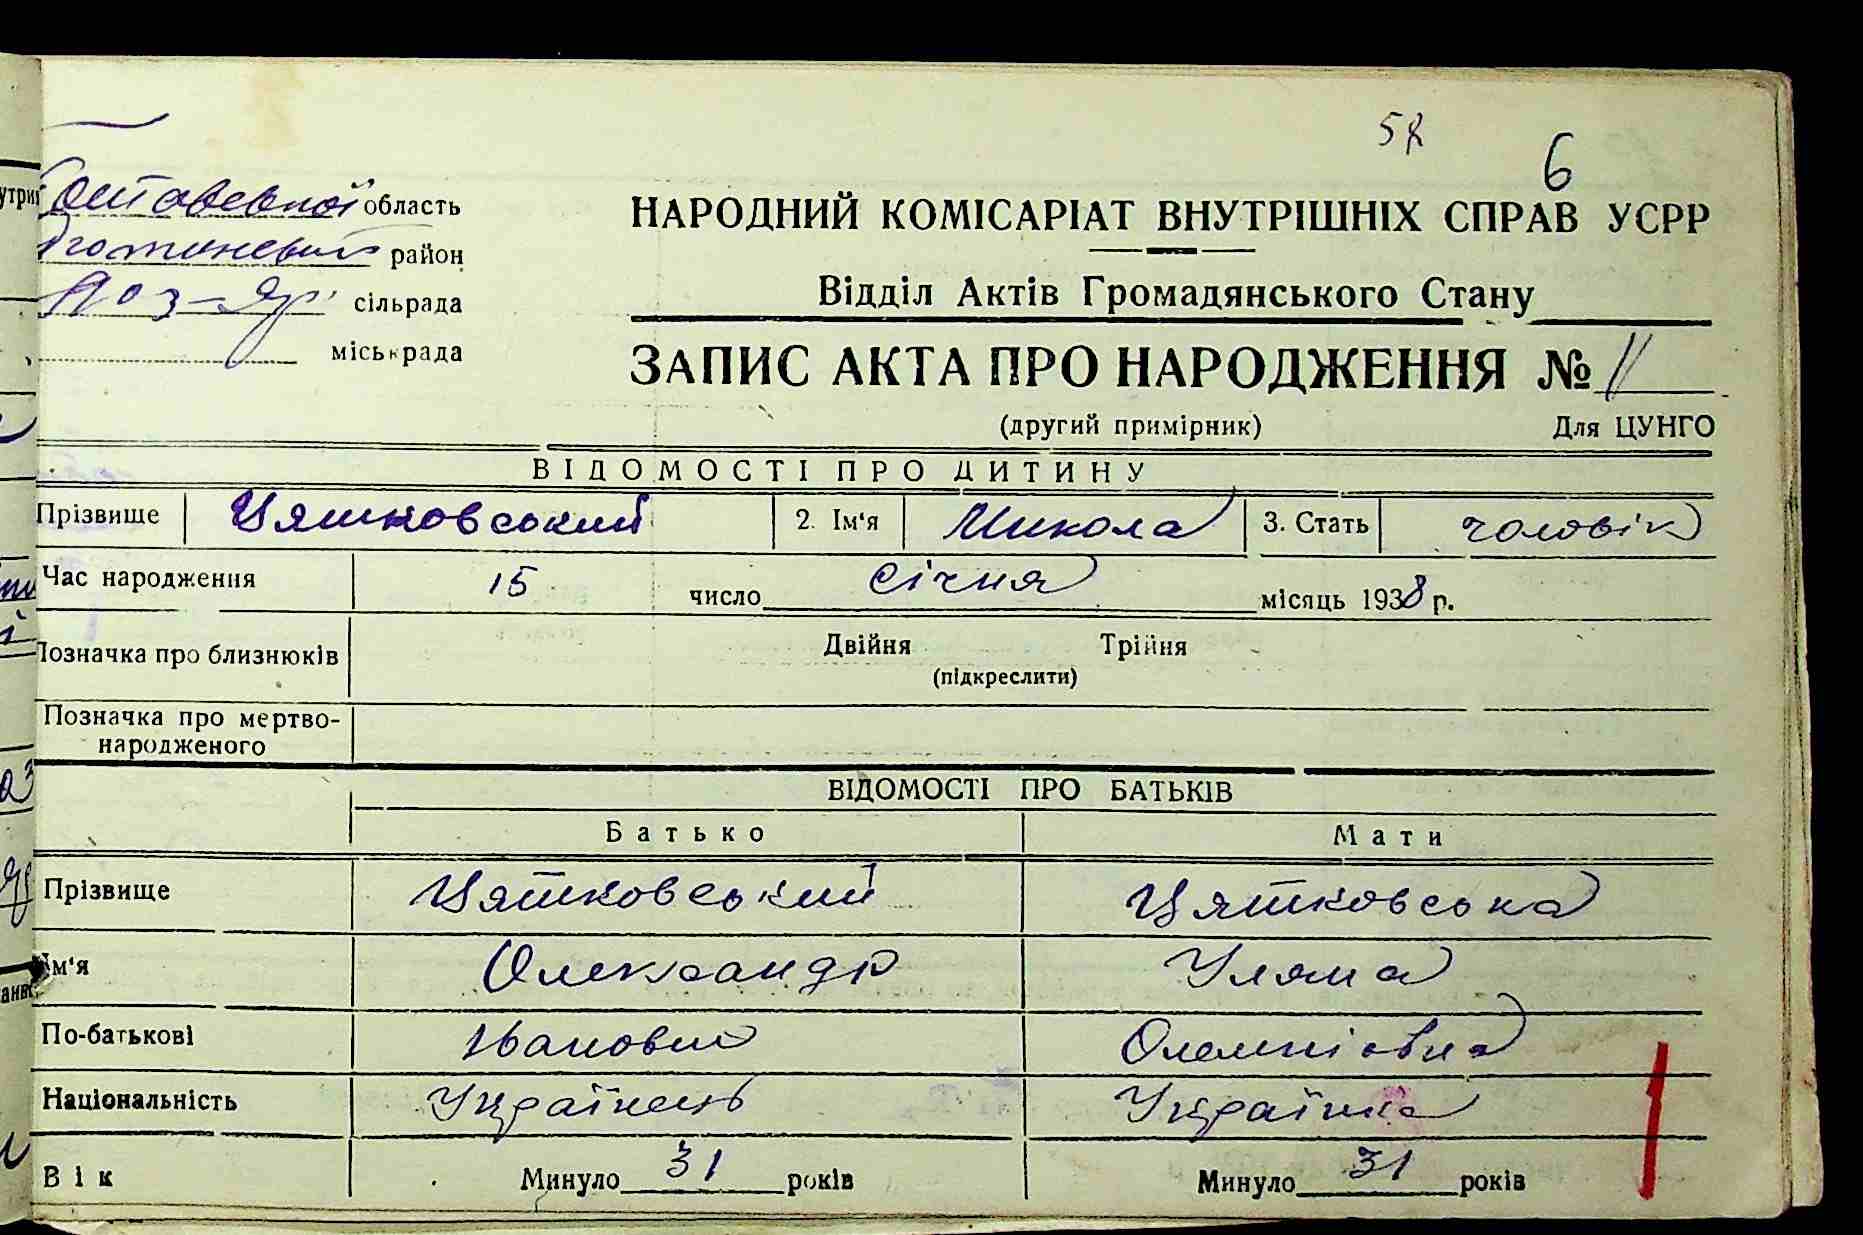 5
6
Полтавської область
район
Яр. сільрада
міськрада
НАРОДНИЙ КОМІСАРІАТ ВНУТРІШНІХ СПРАВ УСРР
Відділ Актів Громадянського Стану
ЗАПИС АКТА ПРО НАРОДЖЕННЯ № 11
(другий примірник) Для ЦУНГО
ВІДОМОСТІ ПРО ДИТИНУ
Прізвище Цяшковський 2. Ім'я Микола 3. Стать чоловік
Час народження 15 число січня місяць 1938 р.
Позначка про близнюків Двійня Трійня
(підкреслити)
Позначка про мертво-
народженого
ВІДОМОСТІ ПРО БАТЬКІВ
Батько Мати
Прізвище Цяшковський Цяшковська
Ім'я Олександр Уляна
По-батькові Іванович
Національність Українець Українка
Вік Минуло 31 років Минуло 31 років